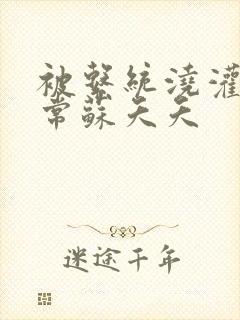 被繫統澆灌
常蘇天天
迷途千年